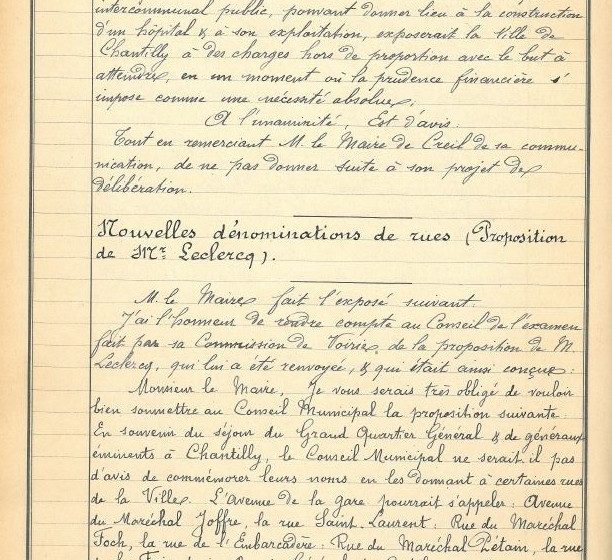 intercommunal public, pouvant donner lieu à la construction
d'un hôpital & à son exploitation, exposerait la Ville de
Chantilly à des charges hors de proportion avec le but à
atteindre, en un moment où la prudence financière s'
impose comme une nécessité absolue;
A l'unanimité, Est d'avis.
Tout en remerciant M. le Maire de Creil de sa commu-
nication, de ne pas donner suite à son projet de
délibération.
Nouvelles dénominations de rues (Proposition
de Mr. Leclercq).
M. le Maire fait l'exposé suivant.
J'ai l'honneur de rendre compte au Conseil de l'examen
fait par sa Commission de Voirie, de la proposition de M.
Leclercq, qui lui a été renvoyée, & qui était ainsi conçue:
Monsieur le Maire, Je vous serais très obligé de vouloir
bien soumettre au Conseil Municipal la proposition suivante.
En souvenir du séjour du Grand Quartier Général & de généraux
éminents à Chantilly, le Conseil Municipal ne serait-il pas
d'avis de commémorer leurs noms en les donnant à certaines rues
de la Ville. L'avenue de la Gare pourrait s'appeler: Avenue
du Maréchal Joffre, la rue Saint-Laurent: Rue du Maréchal
Foch, la rue de l'Embarcadère: Rue du Maréchal Pétain, la rue